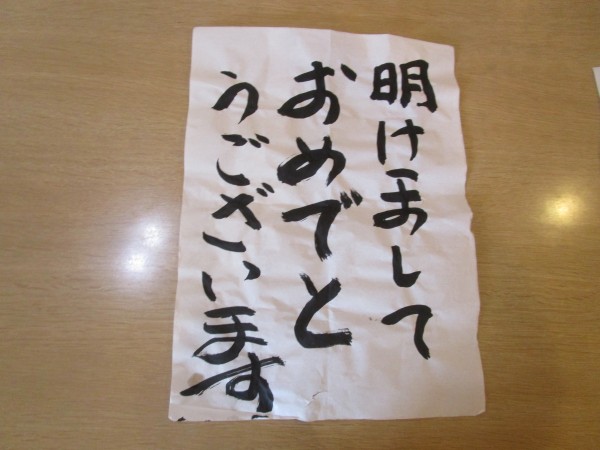 明けまして
おめでと
うございます